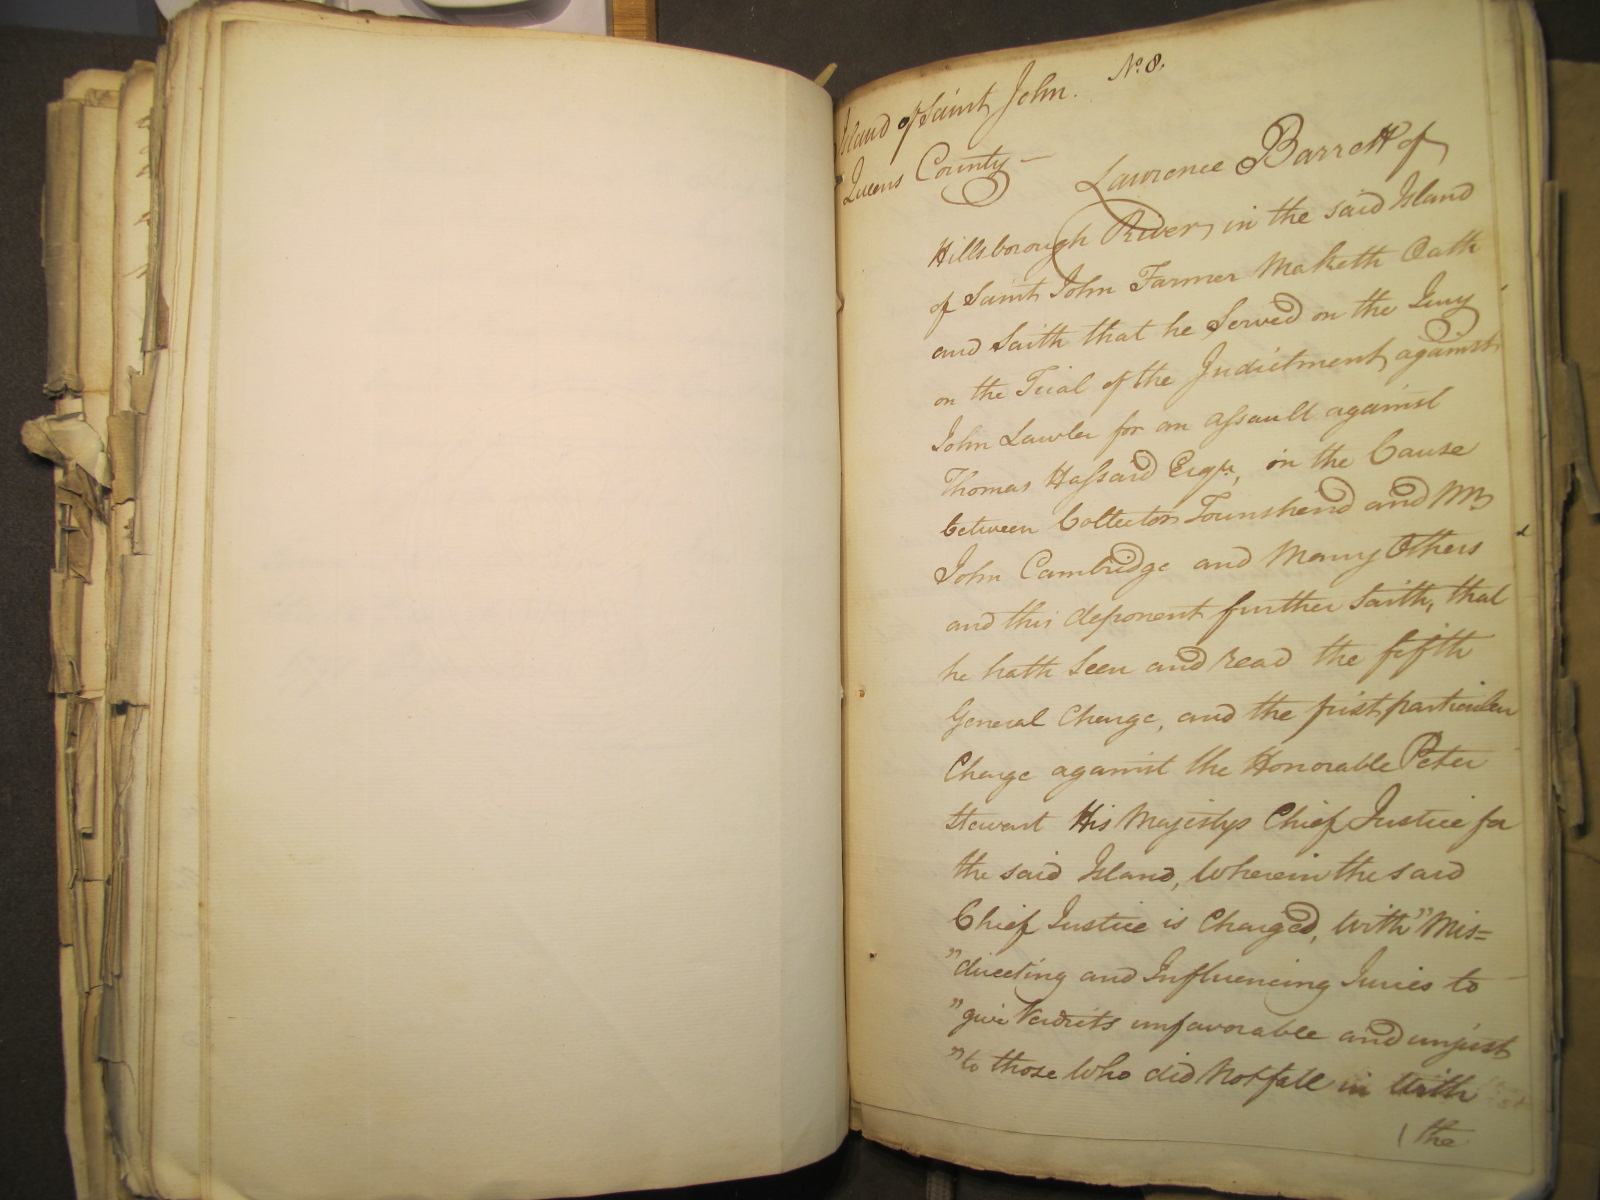 No. 8.
Island of Saint John.
Queens County —
Lawrence Barrett of
Hillsborough River, in the said Island
of Saint John Farmer Maketh Oath
and Saith that he Served on the Jury
on the Trial of the Indictment against
John Lawler for an assault against
Thomas Hassard Esqr., in the Cause
between Collector Townshend and Mr
John Cambridge and Many Others
and this deponent further Saith, that
he hath Seen and read the fifth
General Charge, and the first particular
Charge against the Honorable Peter
Stewart His Majestys Chief Justice for
the said Island, Wherein the said
Chief Justice is Charged, With "Mis=
"directing and Influencing Juries to
"give Verdicts unfavorable and unjust
"to those Who did Not fall in With
(the